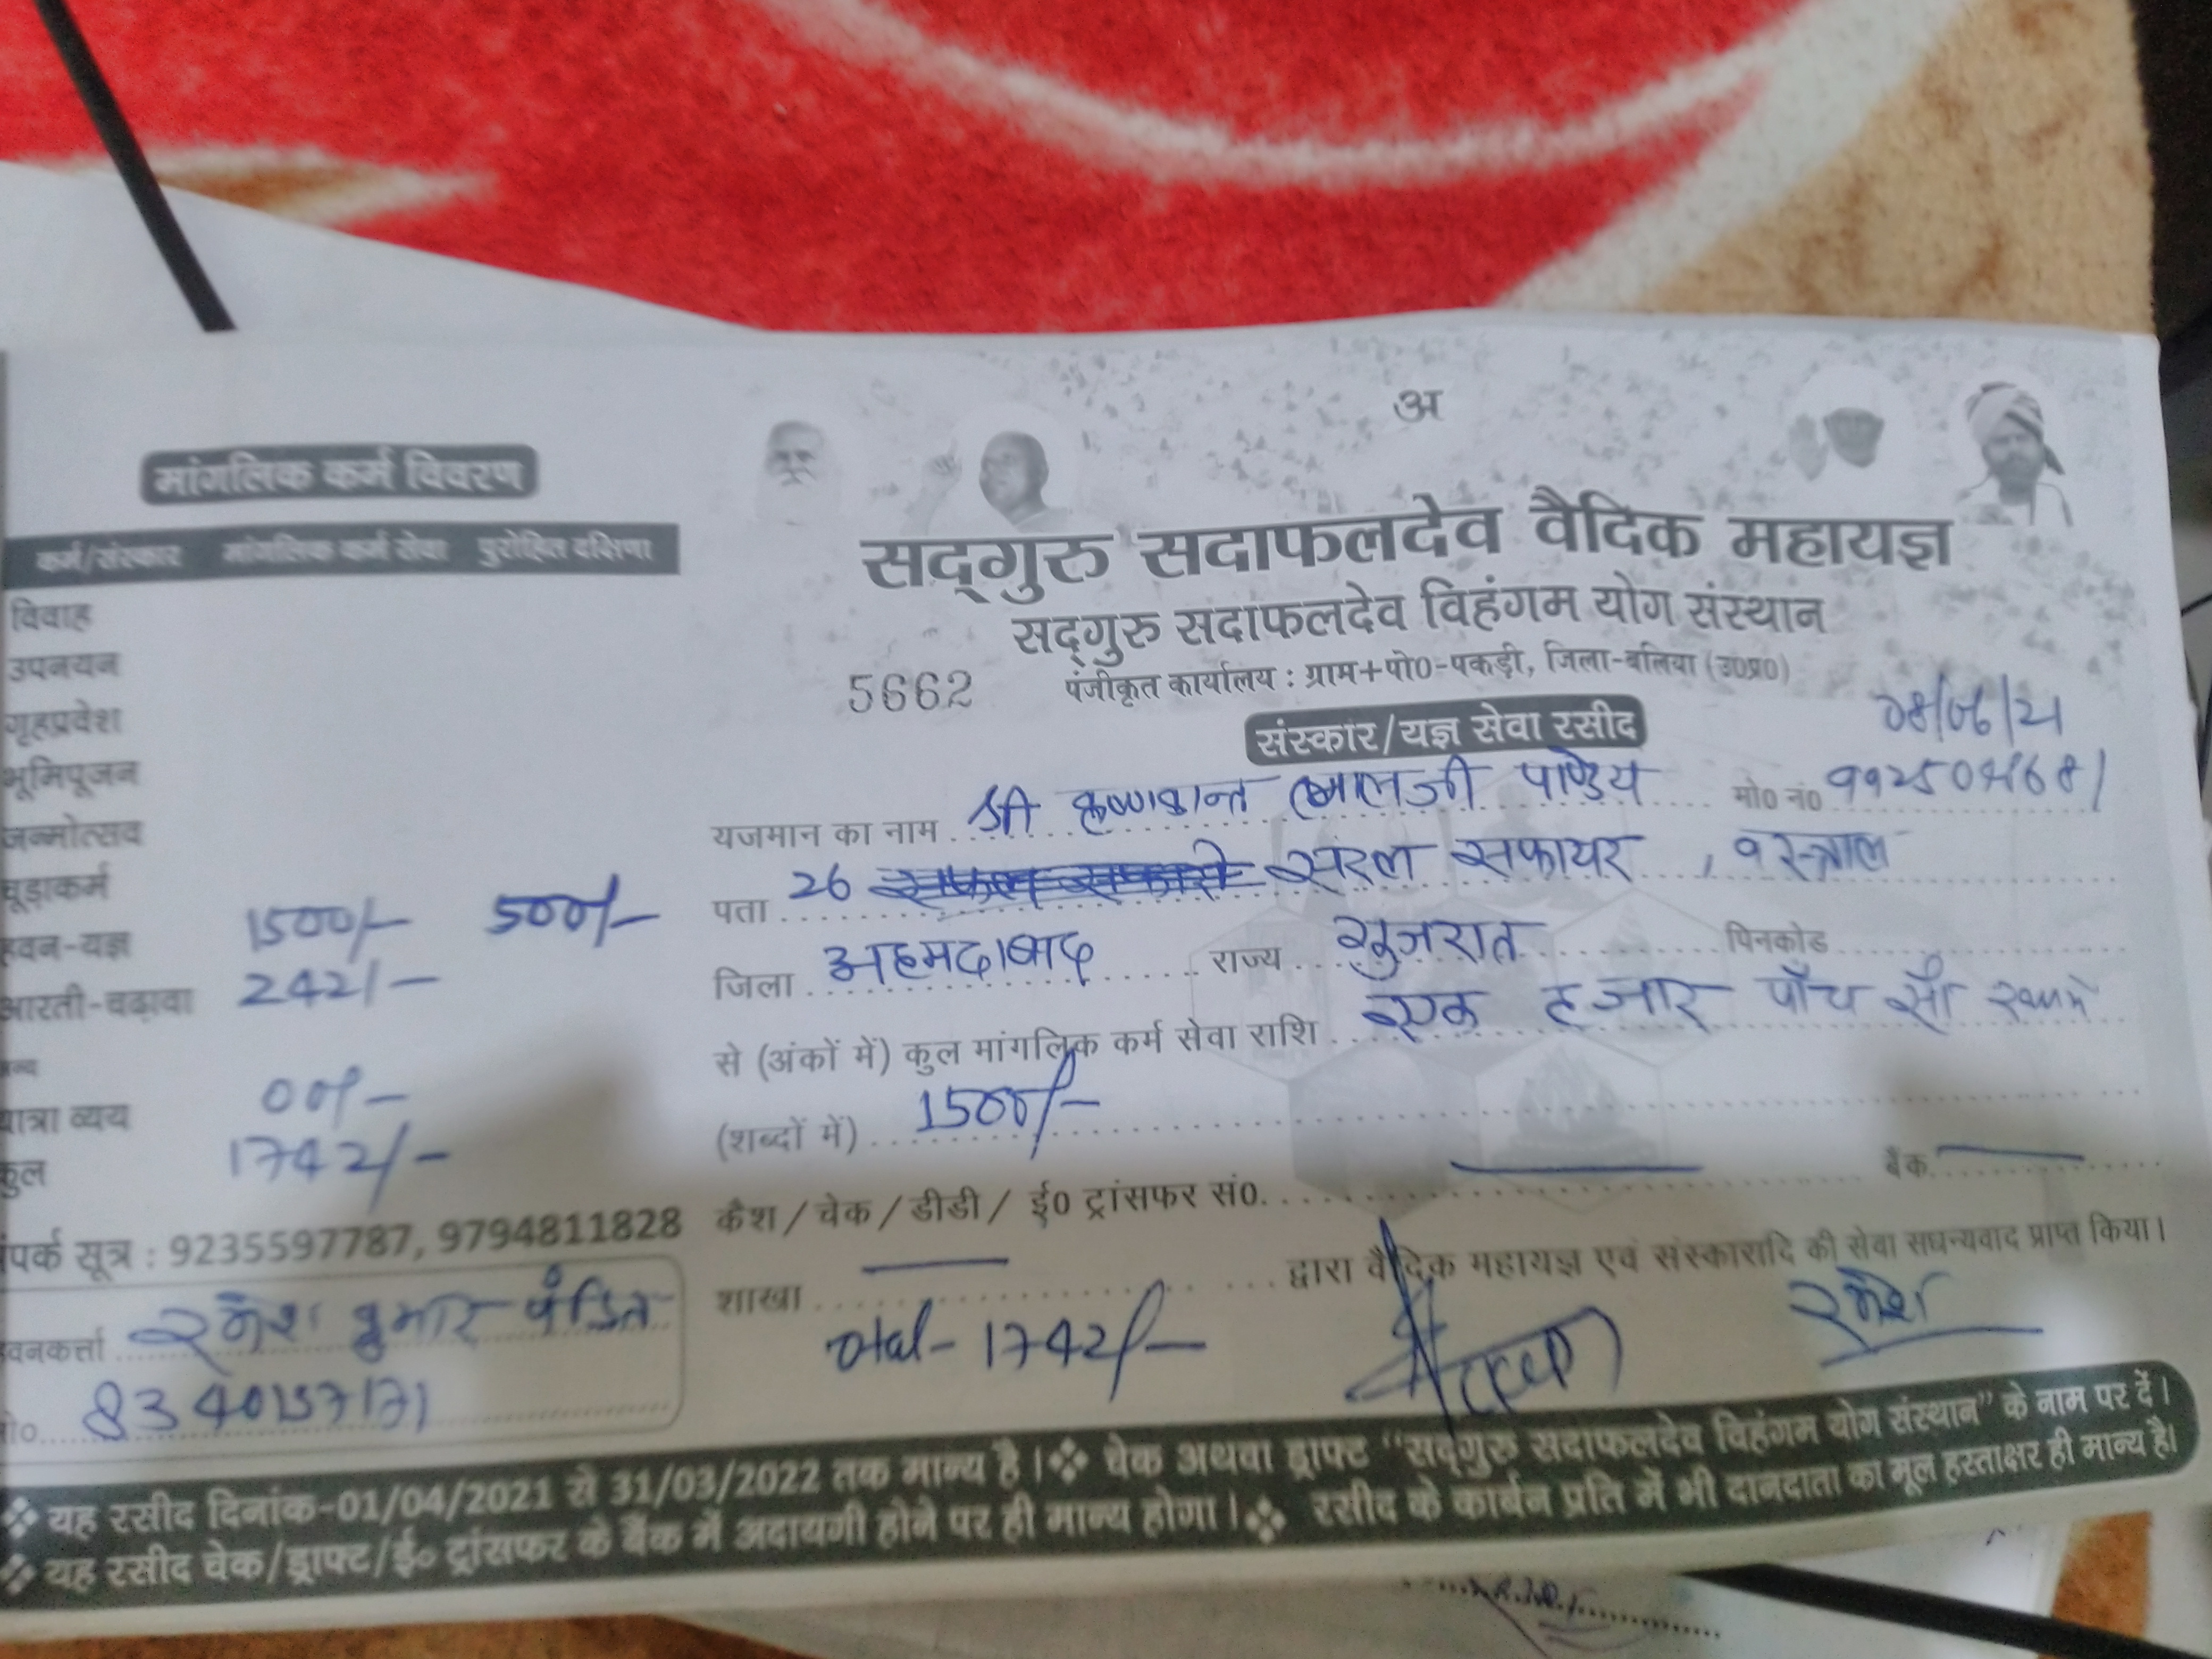 अ
मांगलिक कर्म विवरण
कर्म/संस्कार मांगलिक कर्म सेवा पुरोहित दक्षिणा
विवाह
उपनयन
गृहप्रवेश
भूमिपूजन
जन्मोत्सव
चूड़ाकर्म
हवन-यज्ञ 1500/- 500/-
आरती-चढ़ावा 242/-
न्य
यात्रा व्यय 00/-
कुल 1742/-
ंपर्क सूत्र : 9235597787, 9794811828
वनकर्त्ता रमेश कुमार पंडित
मो०. 8340157171
सद्गुरु सदाफलदेव वैदिक महायज्ञ
सद्गुरु सदाफलदेव विहंगम योग संस्थान
5662 पंजीकृत कार्यालय : ग्राम+पो0-पकड़ी, जिला-बलिया (उ0प्र0)
संस्कार/यज्ञ सेवा रसीद 08/06/21
यजमान का नाम श्री कृष्णकान्त लालजी पाण्डेय मो0 नं0
पता 26 सरल सफायर , वस्त्राल
जिला अहमदाबाद राज्य गुजरात पिनकोड
से (अंकों में) कुल मांगलिक कर्म सेवा राशि एक हजार पाँच सौ
(शब्दों में) 1500/-
कैश / चेक / डीडी / ई0 ट्रांसफर सं0. बैंक
शाखा द्वारा वैदिक महायज्ञ एवं संस्कारादि की सेवा सधन्यवाद प्राप्त किया।
otal- 1742/- रमेश
❖ यह रसीद दिनांक-01/04/2021 से 31/03/2022 तक मान्य है।❖ चेक अथवा ड्राफ्ट "सद्गुरु सदाफलदेव विहंगम योग संस्थान" के नाम पर दें।
❖ यह रसीद चेक/ड्राफ्ट/ई० ट्रांसफर के बैंक में अदायगी होने पर ही मान्य होगा।❖ रसीद के कार्बन प्रति में भी दानदाता का मूल हस्ताक्षर ही मान्य है।